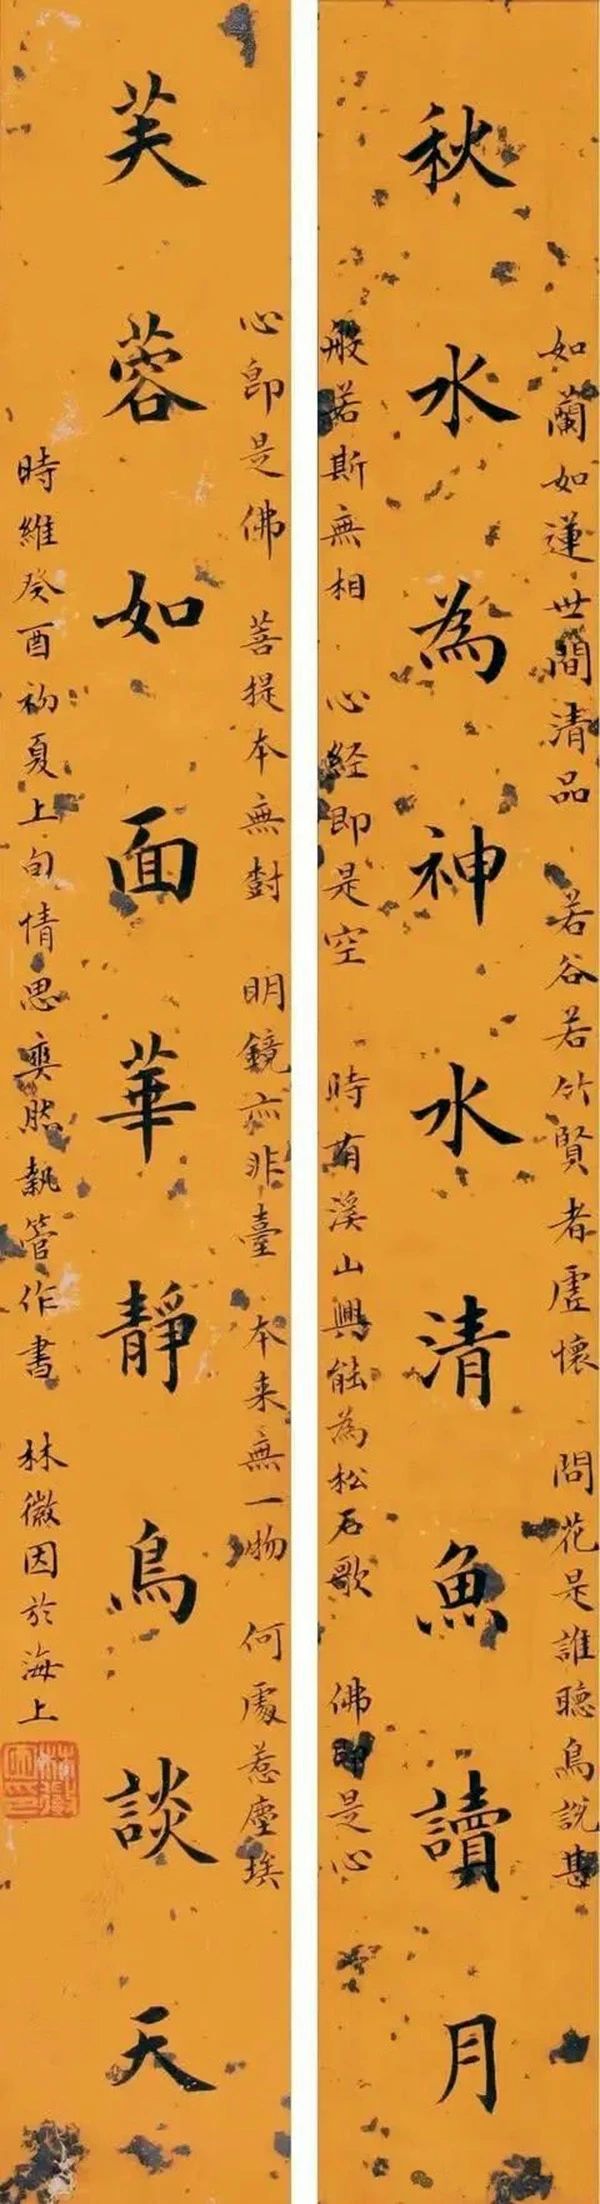 如蘭如蓮世間清品　若谷若竹賢者虛懷　問花是誰聽鳥說甚
秋水為神水清魚讀月
般若斯無相　心経即是空　時有溪山興能為松石歌　佛即是心
心即是佛　菩提本無對　明鏡亦非臺　本来無一物　何處惹塵埃
芙蓉如面華靜鳥談天
時維癸酉初夏上旬情思奭然執管作書　林徽因於海上